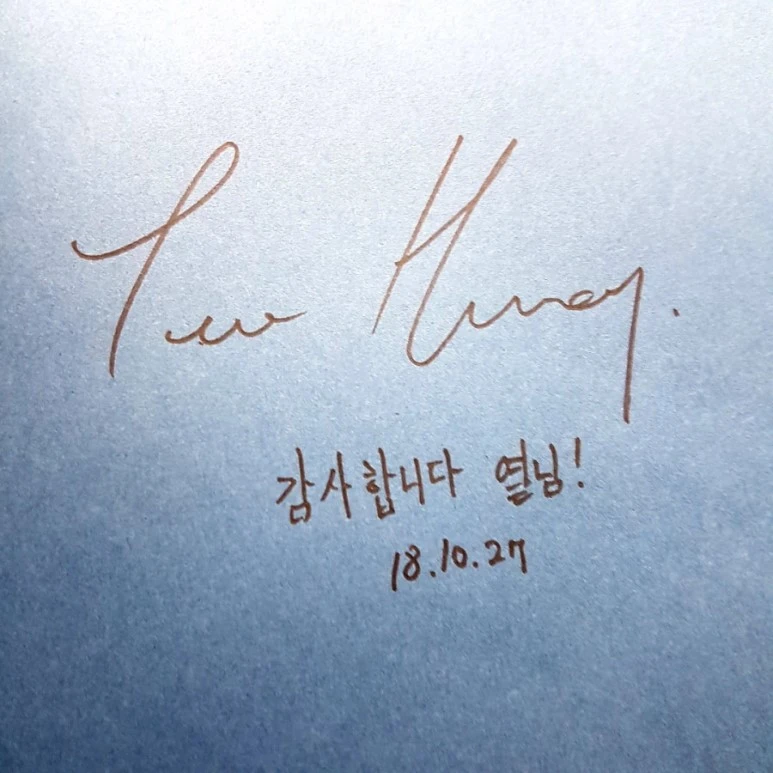 감사합니다 열님!
18.10.27